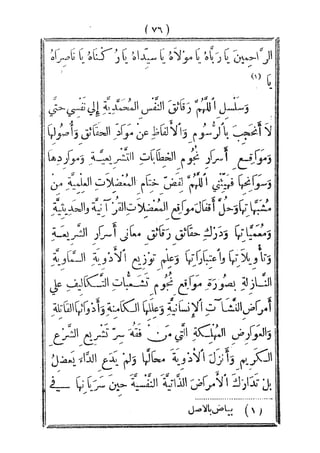 ( ٧٦ )
الرَّاحِمِينَ يَا رَبَّاهُ يَا مَوْلَاهُ يَا سَيِّدَاهُ يَا رُكْنَاهُ يَا نَاصِرَاهُ
يَا (١)
وَسَلْسِلِ اللَّهُمَّ رَقَائِقَ النَّفْسِ الْمُحَمَّدِيَّةِ إِلَى نَفْسِي حَتَّى
لَا أَنْحَجِبَ بِالرُّسُومِ وَالْأَلْفَاظِ عَنْ مَوَارِدِ الْحَقَائِقِ وَأُصُولِهَا
وَمَوَاقِعِ أَسْرَارِ نُجُومِ الْخِطَابَاتِ التَّشْرِيعِيَّةِ وَمَوَارِدِهَا
وَسَوَانِحِهَا فَهَيِّئْنِي اللَّهُمَّ لِفَضِّ خِتَامِ الْمُعْضِلَاتِ الْعِلْمِيَّةِ مِنْ
مُتَشَابِهَاتِهَا وَحُلَّ أَقْفَالَ مَوَاقِعِ الْمُعْضِلَاتِ الْقُرْآنِيَّةِ وَالْحَدِيثِيَّةِ
وَمُعَمَّيَاتِهَا وَدَرْكِ حَقَائِقِ رَقَائِقِ مَعَانِي أَسْرَارِ الشَّرِيعَةِ
وَتَأْوِيلَاتِهَا وَاعْتِبَارَاتِهَا وَعِلْمِ تَوْزِيعِ الْأَدْوِيَةِ السَّمَاوِيَّةِ
النَّازِلَةِ بِصُورَةِ مَوَاقِعِ نُجُومِ تَشَعُّبَاتِ التَّكَالِيفِ عَلَى
أَمْرَاضِ النَّشْآتِ الْإِنْسَانِيَّةِ وَعِلَلِهَا الْكَامِنَةِ وَأَدْوَائِهَا الْقَاتِلَةِ
وَالْعَوَارِضِ الْمُهْلِكَةِ الَّتِي مَنْ فَقِهَ سِرَّ تَشْرِيعِ الشَّرْعِ
الْكَرِيمِ وَأَنْزَلَ الْأَدْوِيَةَ مَحَالَّهَا وَلَمْ يَدَعِ الدَّاءَ يَعْضُلُ
بَلْ تَدَارَكَ الْأَمْرَاضَ الذَّاتِيَّةَ النَّفْسِيَّةَ حِينَ سَرَيَانِهَا فِي
(١) بياض بالاصل